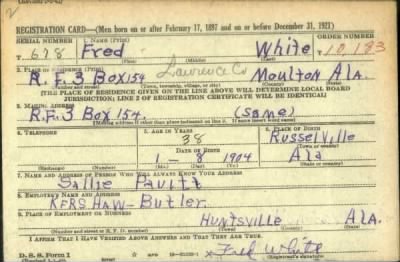 2
REGISTRATION CARD—(Men born on or after February 17, 1897 and on or before December 31, 1921)
SERIAL NUMBER 1. NAME (Print) ORDER NUMBER
T 678 Fred White T 10,183
(First) (Middle) (Last)
2. PLACE OF RESIDENCE (Print)
R.F. 3 Box 154 Lawrence Co Moulton Ala.
(Number and street) (Town, township, village, or city) (County) (State)
[THE PLACE OF RESIDENCE GIVEN ON THE LINE ABOVE WILL DETERMINE LOCAL BOARD
JURISDICTION; LINE 2 OF REGISTRATION CERTIFICATE WILL BE IDENTICAL]
3. MAILING ADDRESS
R.F. 3 Box 154. (Same)
[Mailing address if other than place indicated on line 2. If same insert word same]
4. TELEPHONE 5. AGE IN YEARS 6. PLACE OF BIRTH
38 Russellville
DATE OF BIRTH (Town or county)
1 - 8 1904 Ala
(Exchange) (Number) (Mo.) (Day) (Yr.) (State or country)
7. NAME AND ADDRESS OF PERSON WHO WILL ALWAYS KNOW YOUR ADDRESS
Sallie
8. EMPLOYER'S NAME AND ADDRESS
Butler
9. PLACE OF EMPLOYMENT OR BUSINESS
Huntsville Ala.
(Number and street or R. F. D. number) (Town) (County) (State)
I AFFIRM THAT I HAVE VERIFIED ABOVE ANSWERS AND THAT THEY ARE TRUE.
D. S. S. Form 1 x Fred White
(Registrant's signature)